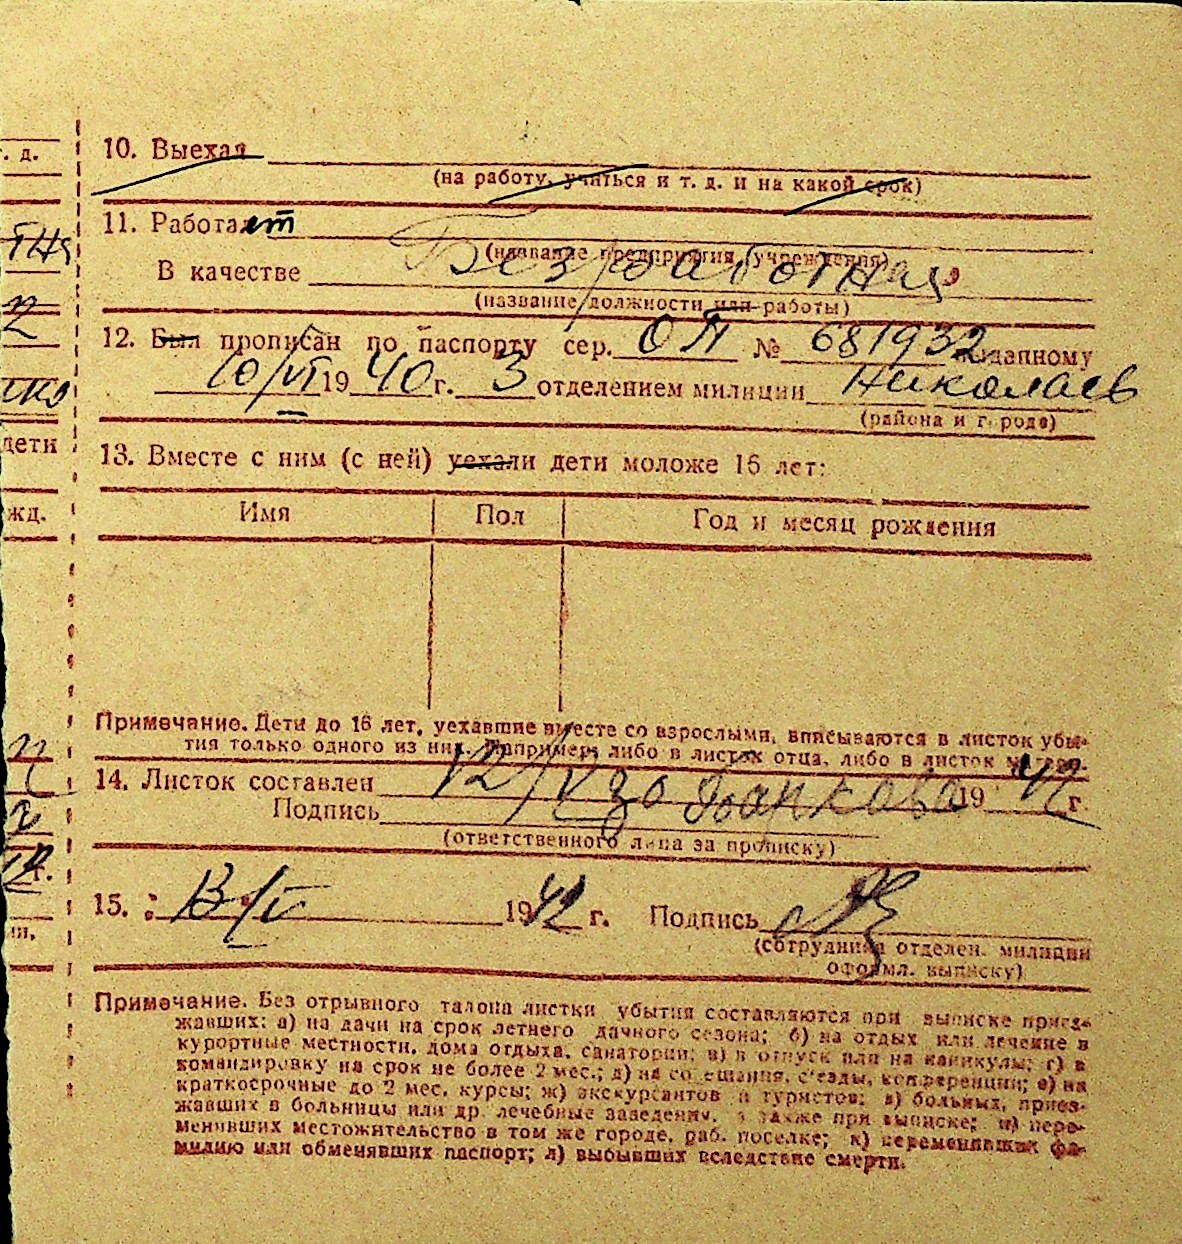 10. Выехал
(на работу, учиться и т. д. и на какой срок)
11. Работает
(название предприятия, учреждения)
В качестве Безработная
(название должности или работы)
12. Был прописан по паспорту сер. ОЛ № 681932 выданному
10/VI 1940 г. 3 отделением милиции Николаев
(района и города)
13. Вместе с ним (с ней) уехали дети моложе 16 лет:
Имя Пол Год и месяц рождения
Примечание. Дети до 16 лет, уехавшие вместе со взрослыми, вписываются в листок убы-
тия только одного из них. Например: либо в листок отца, либо в листок матери.
14. Листок составлен 12/IV 1942 г.
Подпись
(ответственного лица за прописку)
15. 13/IV 1942 г. Подпись
(сотрудника отделен. милиции
оформл. выписку)
Примечание. Без отрывного талона листки убытия составляются при выписке приез-
жавших: а) на дачи на срок летнего дачного сезона; б) на отдых или лечение в
курортные местности, дома отдыха, санатории; в) в отпуск или на каникулы; г) в
командировку на срок не более 2 мес.; д) на совещания, съезды, конференции; е) на
краткосрочные до 2 мес. курсы; ж) экскурсантов и туристов; з) больных, приез-
жавших в больницы или др. лечебные заведения, а также при выписке; и) пере-
менивших местожительство в том же городе, раб. поселке; к) переменивших фа-
милию или обменявших паспорт; л) выбывших вследствие смерти.